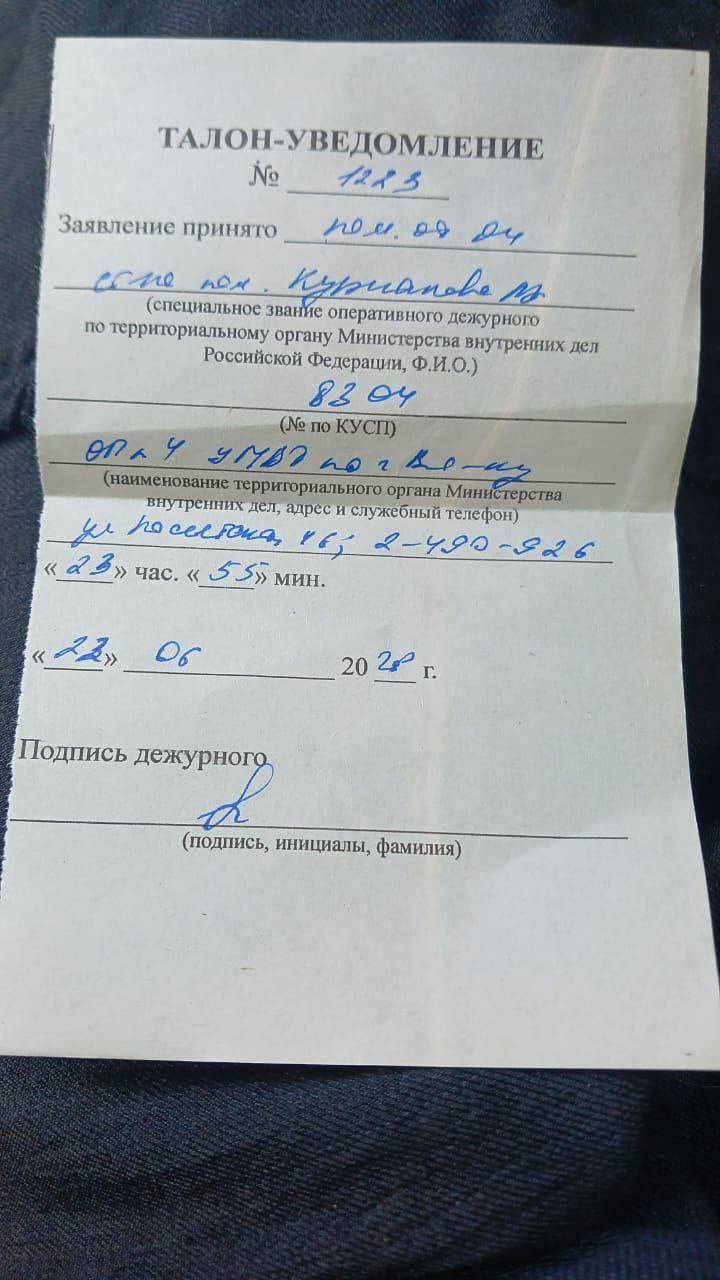 ТАЛОН-УВЕДОМЛЕНИЕ
№ 1223
Заявление принято пом. од ОЧ
пол.
(специальное звание оперативного дежурного
по территориальному органу Министерства внутренних дел
Российской Федерации, Ф.И.О.)
8304
(№ по КУСП)
ОП 4 УМВД по г Вл-ку
(наименование территориального органа Министерства
внутренних дел, адрес и служебный телефон)
ул 2-490-926
«23» час. «55» мин.
« » 06 20 г.
Подпись дежурного
(подпись, инициалы, фамилия)